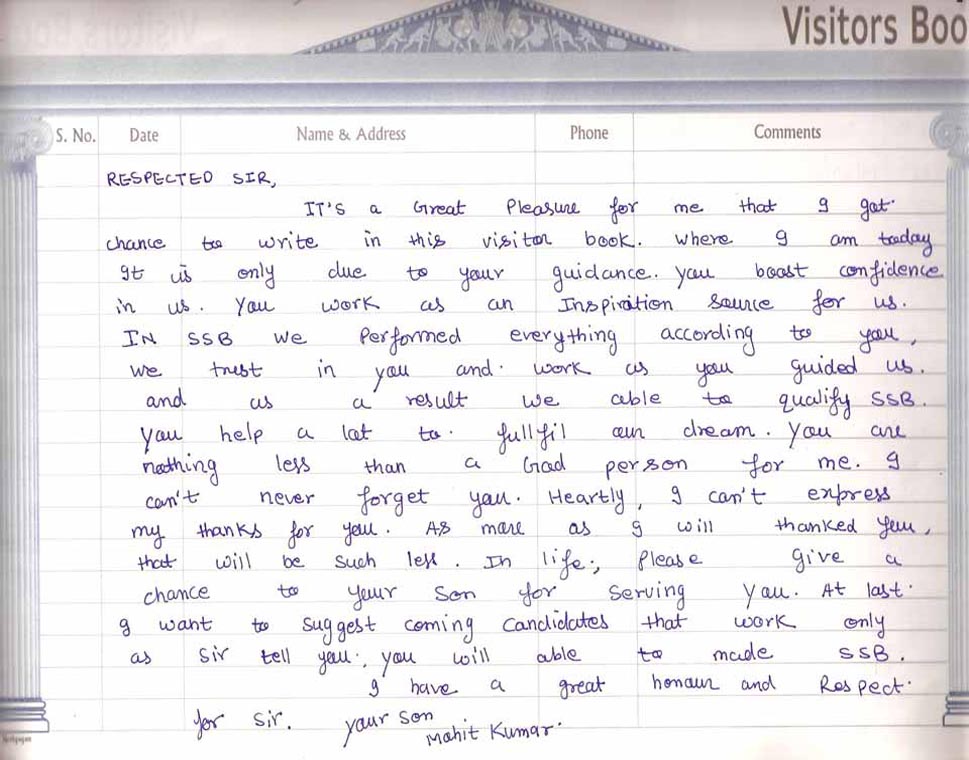 Visitors Boo
S. No. Date Name & Address Phone Comments
RESPECTED SIR,
IT'S a Great Pleasure for me that I got
chance to write in this visitor book. where I am today
It is only due to your guidance. you boost confidence
in us. You work as an Inspiration source for us.
IN SSB we Performed everything according to you,
we trust in you and work as you guided us.
and as a result we able to qualify SSB.
you help a lot to fullfil our dream. you are
nothing less than a God person for me. I
can't never forget you. Heartly, I can't express
my thanks for you. As more as I will thanked you,
that will be such less. In life, Please give a
chance to your son for serving you. At last
I want to suggest coming candidates that work only
as sir tell you, you will able to made SSB.
I have a great honour and Respect
for sir. your son
Mohit Kumar